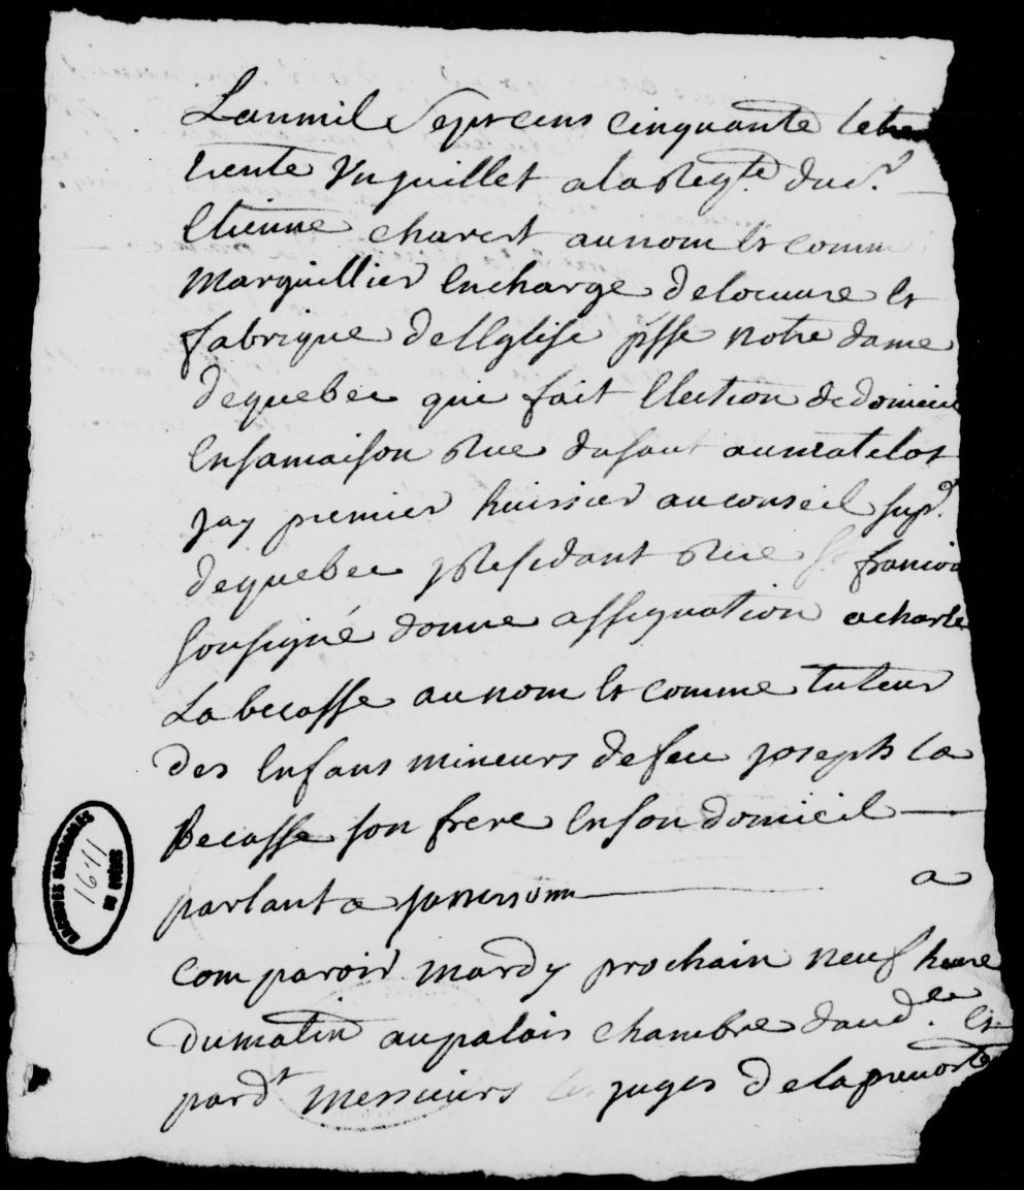 Lanmil Sept cens cinquante le
trente un juillet a la Reqte. du Sr.
Etienne charest aunom et comm
Marguillier Encharge delœuvre et
fabrique delEglise psse notre dame
dequebec qui fait Election dedomicil
Ensamaison Rue dusaut aumatelot
Jay premier huissier auconseil supr.
dequebec y Residant Rue St. francois
sousigné donné assignation acharle
Labecasse aunom et comme tuteur
des Enfans mineurs defeu joseph la
Becasse son frere Enson domicil
parlant a sa personne a
comparoir mardy prochain neuf heure
dumatin aupalais chambre daudce. et
pardt Messieurs les juges delaprevosté
ARCHIVES NATIONALES
1641
DU QUÉBEC